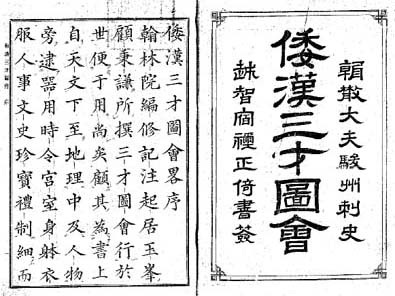 朝散大夫駿州刺史
倭漢三才圖會
越智宿禰正倚書簽
倭漢三才圖會畧序
翰林院編修記注起居玉峯
顧秉謙所撰三才圖會行於
世便于用尚矣顧其為書上
自天文下至地理中及人物
旁逮器用時令宮室身躰衣
服人事文史珍寶禮制細而